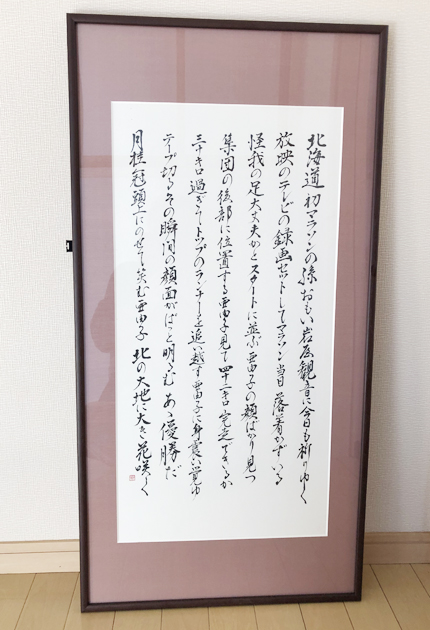 北海道初マラソンの孫おもい岩屋観音に今日も祈りゆく
放映のテレビの録画セットしてマラソン当日落着かずいる
怪我の足大丈夫かとスタートに並ぶ亜由子の顔ばかり見つ
集団の後部に位置する亜由子見て四十二キロ完走できるか
三十キロ過ぎてトップのランナーを追い越す亜由子に身震い覚ゆ
テープ切るその瞬間の顔面がぱっと明るむあゝ優勝だ
月桂冠頭上にのせて笑む亜由子北の大地に大き花咲く